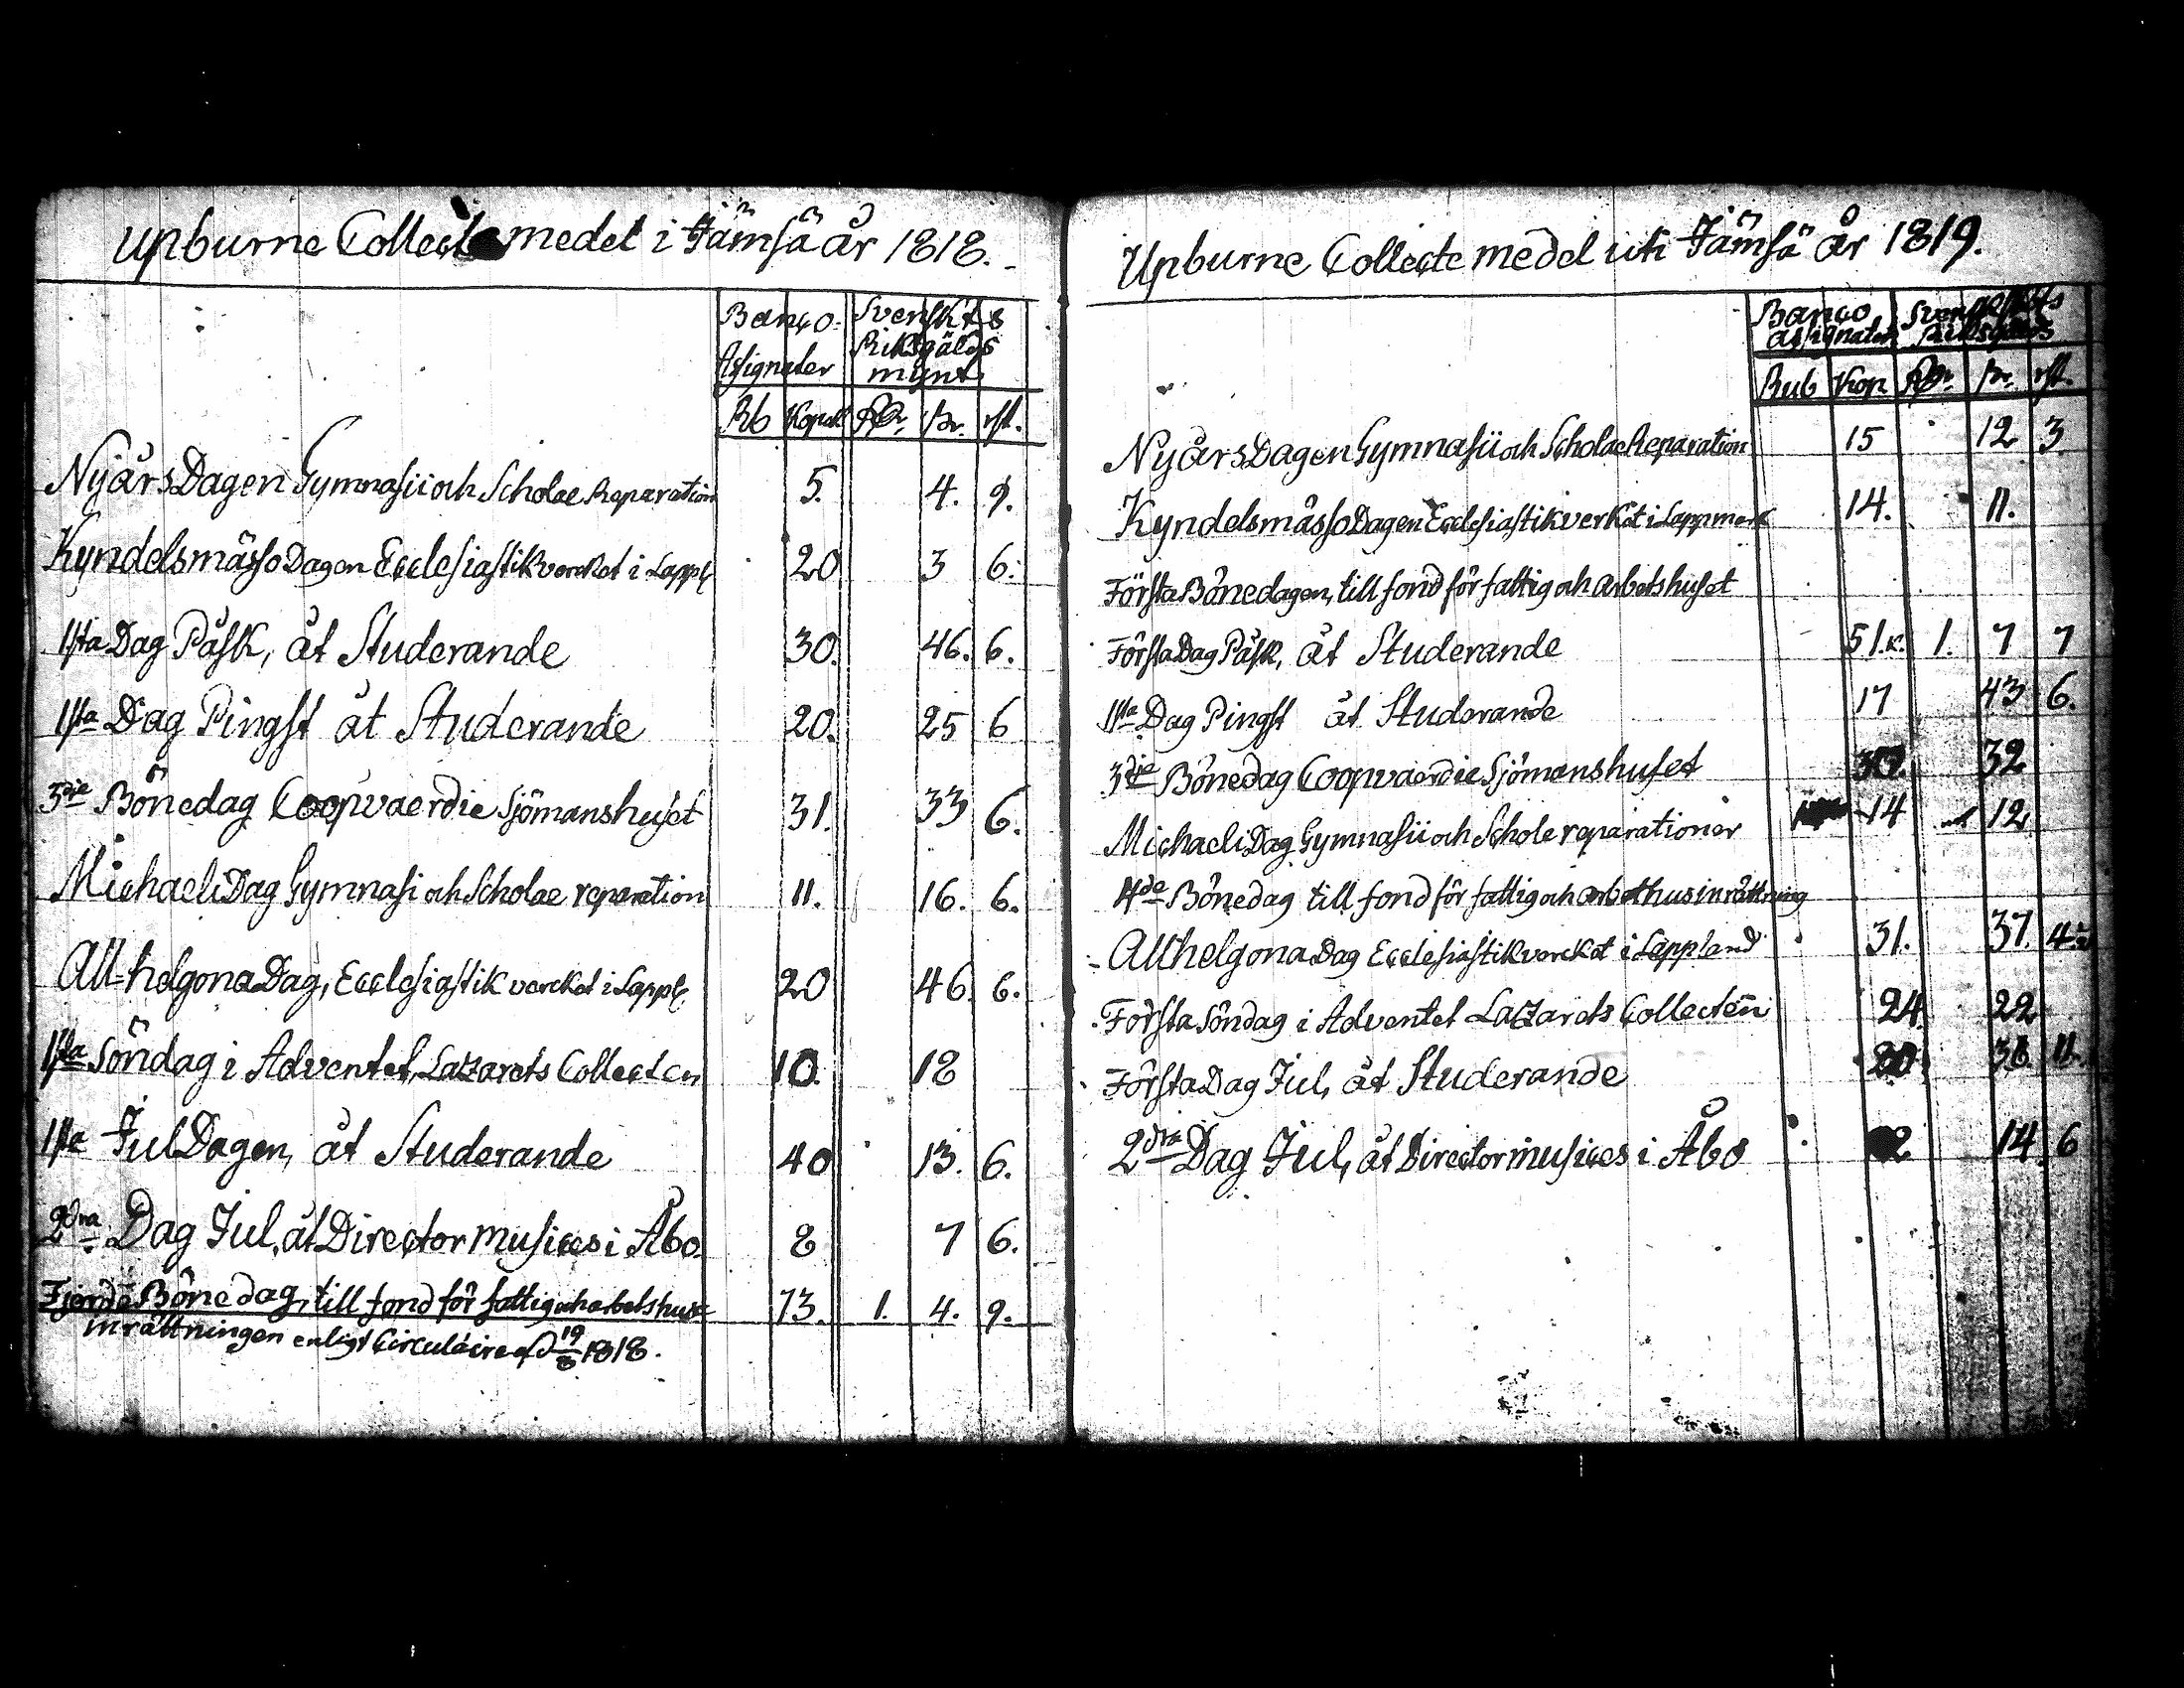 Upburne Collecte medel i Jämsä år 1818.
Banco Assignater Svenskts Riksgälds mynt
Rb Kopek Rdr. sk. rst.
Nyårs Dagen Gymnasii och Scholae Reparation 5. 4. 9.
Kyndelsmässo Dagen Ecclesiastikverket i Lappl. 20 3 6.
1sta Dag Påsk, åt Studerande 30. 46. 6.
1sta Dag Pingst åt Studerande 20. 25 6
3die Bönedag Coopvaerdie Sjömanshuset 31. 33 6.
Michaeli Dag Gymnasi och Scholae reparation 11. 16. 6.
All-helgona Dag, Ecclesiastik verket i Lappl. 20 46. 6.
1sta Söndag i Adventet, Lazarets Collecten 10. 18
1sta Jul Dagen, åt Studerande 40 13. 6.
2dra Dag Jul, åt Director musices i Åbo. 8 7 6.
Fjerde Bönedag, till fond för fattig och arbetshus 73. 1. 4. 9.
inrättningen enligt Circulaire af d 19/8 1818.
Upburne Collecte medel uti Jämsä år 1819.
Banco Assignater Svenskts Riksgälds
Rub Kop Rdr. sk. rst.
Nyårs Dagen Gymnasii och Scholae Reparation 15 12 3.
Kyndelsmässo Dagen Ecclesiastikverket i Lappmark 14. 11.
Första Bönedagen, till fond för fattig och arbetshuset
Första Dag Påsk, åt Studerande 51.k. 1. 7 7
1sta Dag Pingst åt Studerande 17 43. 6.
3die Bönedag Coopvaerdie Sjömanshuset 32
Michaeli Dag Gymnasii och Schole reparationer 14 12
4de Bönedag till fond för fattig och arbethusinrättning
Allhelgona Dag Ecclesiastikverket i Lappland 31. 37. 4
Första Söndag i Adventet Lazarets Collecten 24. 22
Första Dag Jul, åt Studerande 20. 36. 11.
2dra Dag Jul, åt Director musices i Åbo 2 14. 6